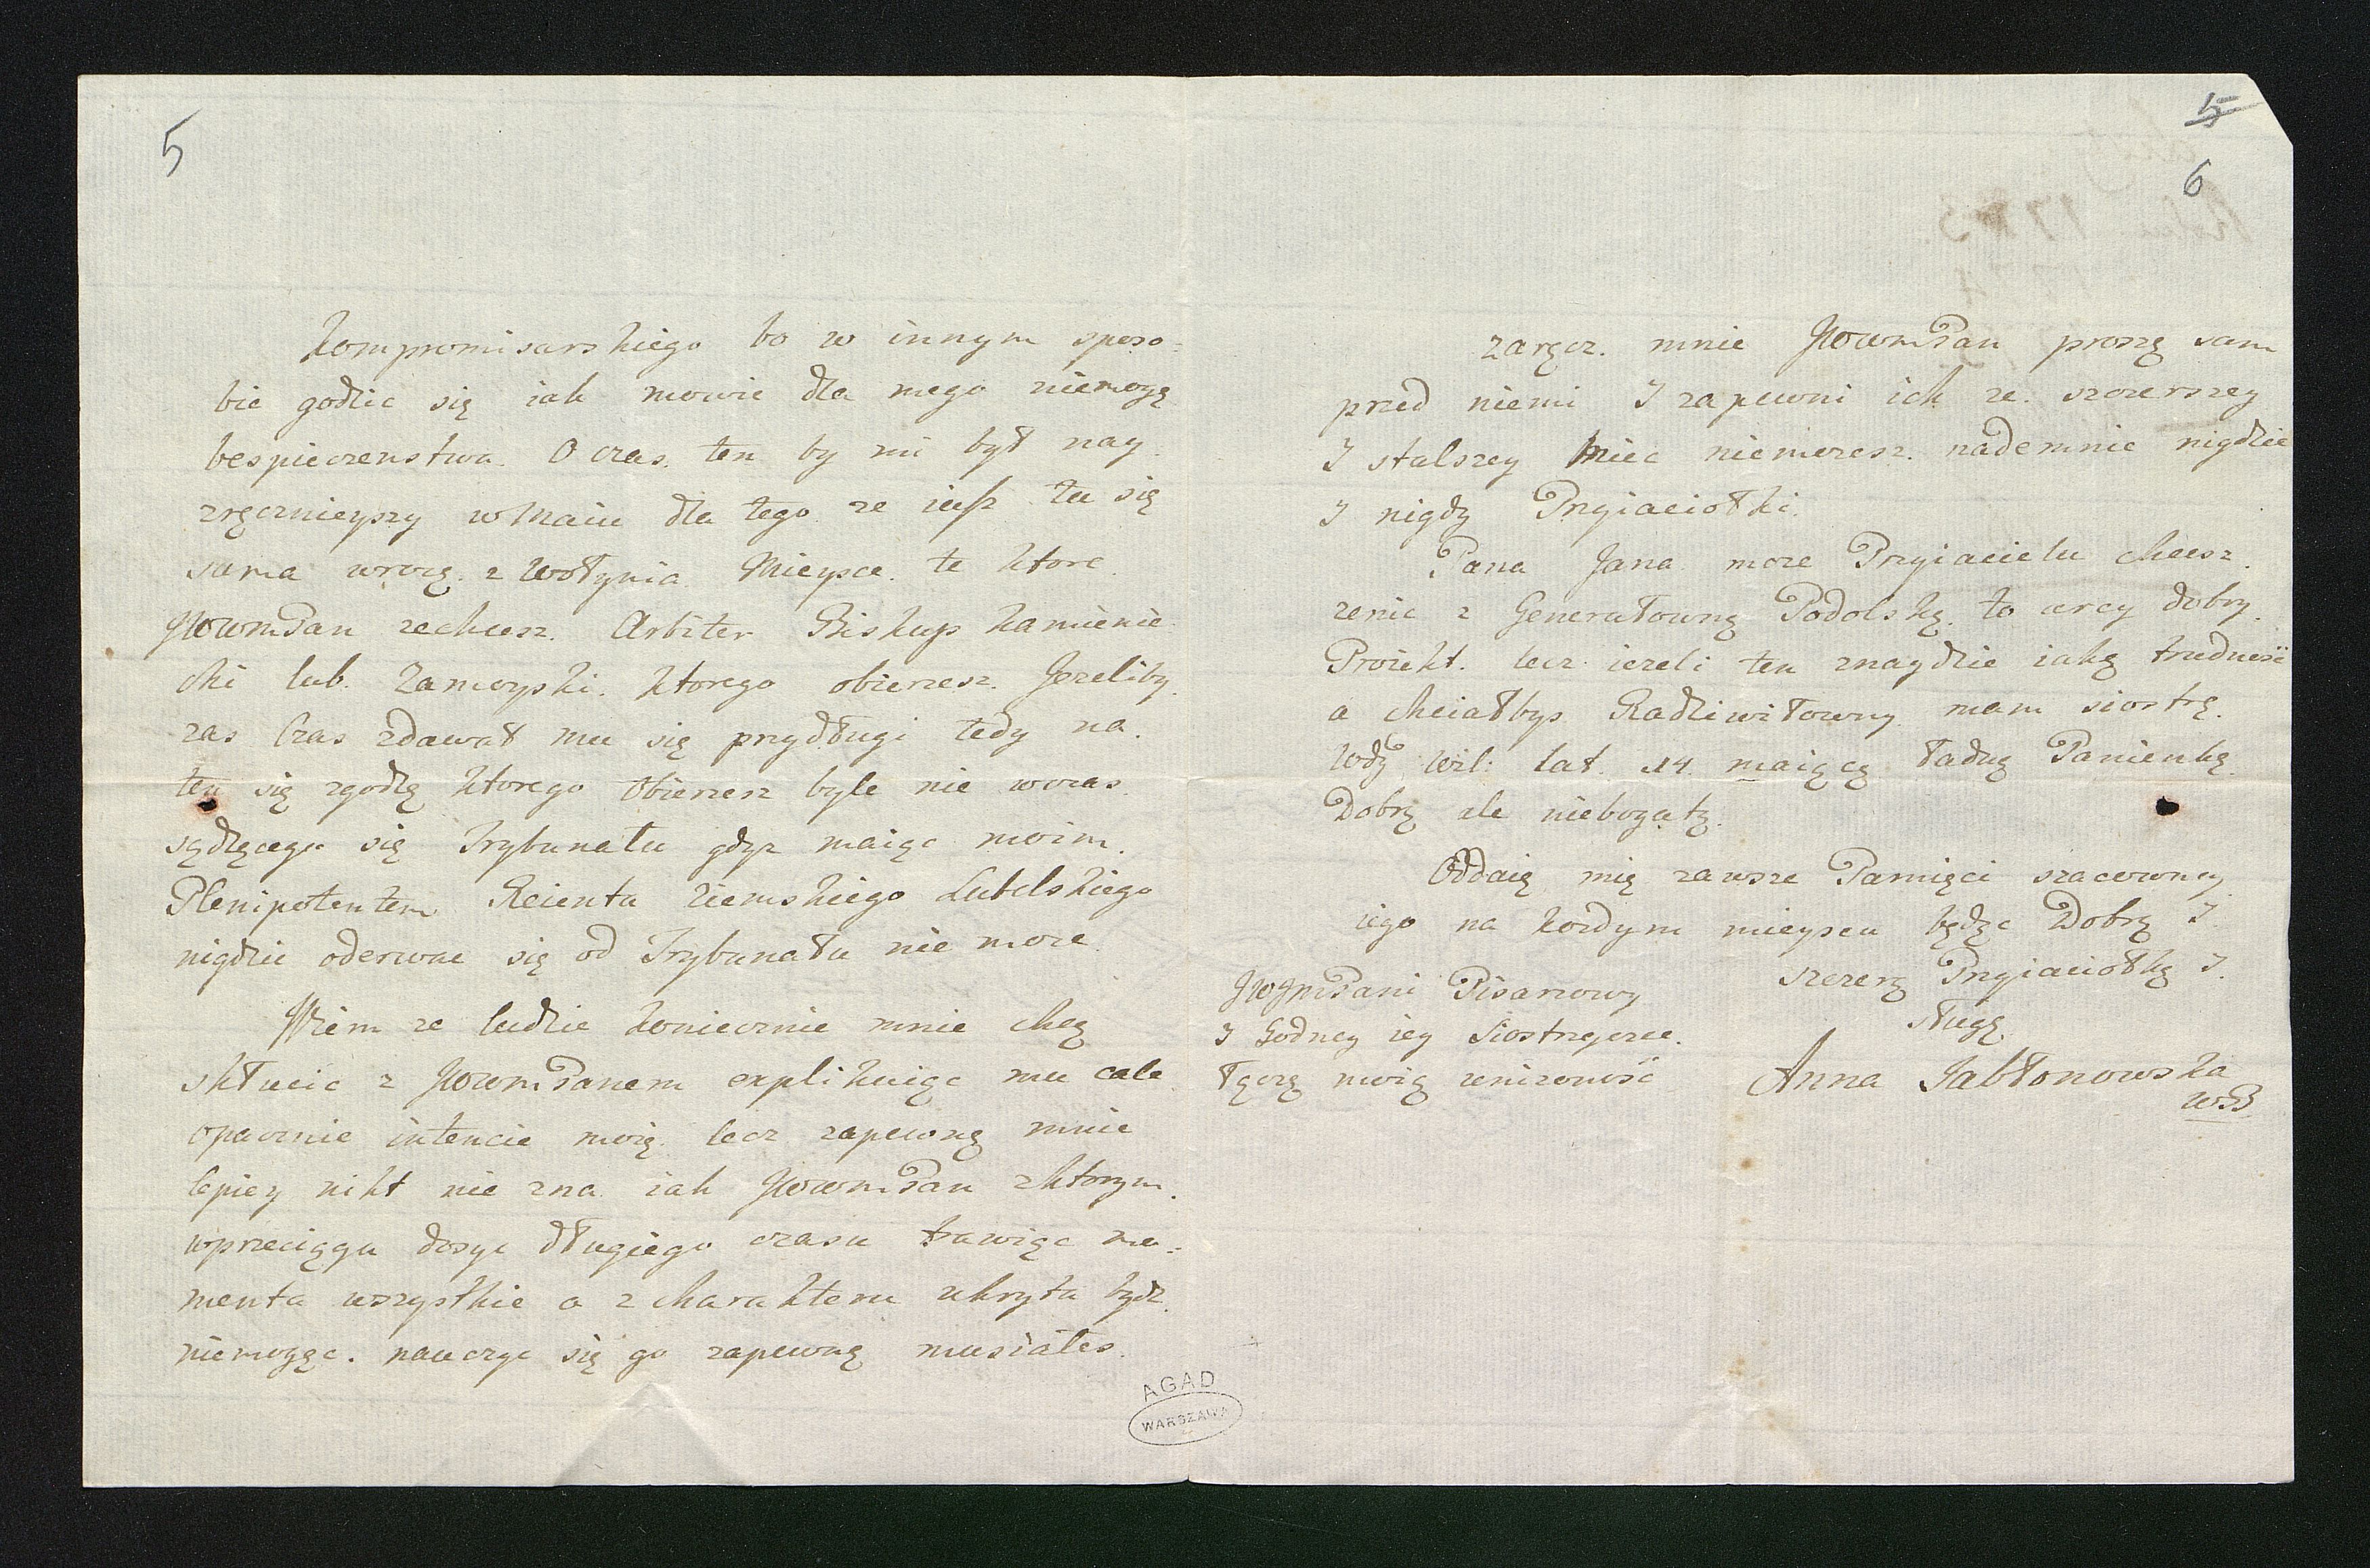 5
Kompromisarskiego bo w innym sposo=
bie godzic się iak mowie dla mego niemogę
bespieczenstwa. O czas. ten by mi był nay
zręcznieyszy w Maiu dla tego ze iusz tu się
sama wrocę z Wołynia Mieysce te ktore
JWWmPan zechcesz. Arbiter Biskup Kamienie
cki lub Zamoyski. ktorego obierzesz. Jezeliby
zas Czas zdawał mu się przydługi tedy na
ten się zgodzę ktorego obierzesz byle nie wczas
sądzącego się Trybunatu gdyz maiąc moim
Plenipotentem Reienta Ziemskiego Lubelskiego
nigdzie oderwac się od Trybunału nie moze
Wiem ze ludzie koniecznie mnie chcą
skłucic z JWWmPanem explikuiąc mu cale
opacznie intencie moię lecz zapewnę mnie
lepiey nikt nie zna iak JWWmPan z ktorym
wprzeciągu dosyc długiego czasu trawiąc mo=
menta wszystkie a z charakteru ukryta bydz
niemogąc. nauczyc się go zapewnę musiałes
5
6
zaręcz. mnie JWWmPan proszę sam
przed niemi I zapewni ich ze szczerszey
I stalszey Miec niemozesz. nademnie nigdzie
I nigdy Przyiaciołki.
Pana Jana moze Przyiacielu chcesz
zenic z Generałowną Podolską. to arcy dobry
Proiekt. lecz iezeli ten znaydzie iaką trudnosc
a chciałbys Radziwiłowny mam siostrę
Wdy Wil: lat. 14. maiącą ładną Panienkę
Dobrą ale niebogatą.
Oddaię mię zawsze Pamięci szacowney
iego na kozdym mieyscu będąc Dobrą I
szczerą Przyiaciołką I
sługą
Anna Jabłonowska
WB
JWJmPani Pisarzowy
I Godney iey Siostrzycze
łączę moię unizonosc
AGAD
WARSZAWA